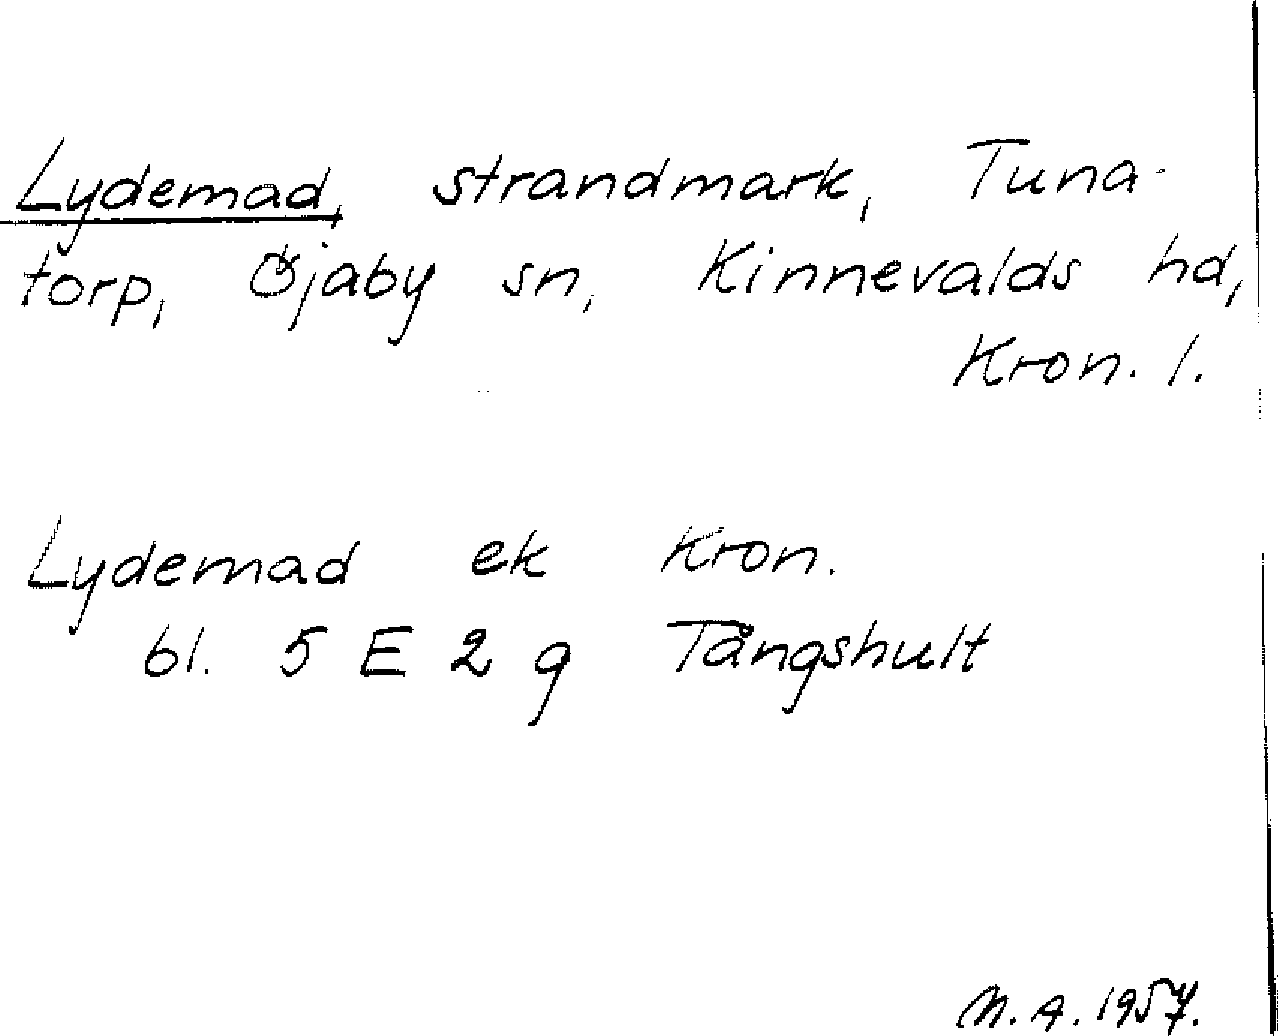 Lydemad, strandmark, Tuna-
torp, Öjaby sn, Kinnevalds hd,
Kron. l.
Lydemad ek Kron.
bl. 5 E 2 g Tångshult
M. A. 1957.